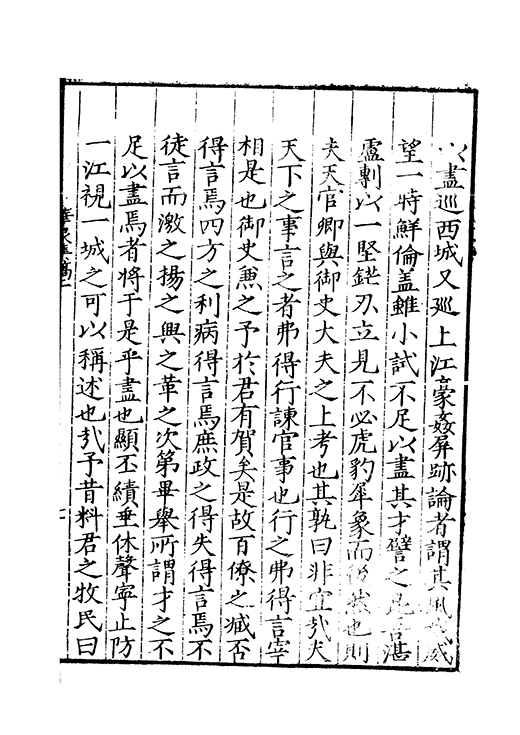 以盡巡西城又廵上江豪姦屏跡論者謂其風裁威
望一時鮮倫盖雖小試不足以盡其才譬之昆吾湛
盧剸以一堅鋩刃立見不必虎豹犀象而後然也則
夫天官卿與御史大夫之上考也其孰曰非宜㢤夫
天下之事言之者弗得行諫官事也行之弗得言宰
相是也御史兼之予於君有賀矣是故百僚之臧否
得言焉四方之利病得言焉庶政之得失得言焉不
徒言而激之揚之興之革之次第畢舉所謂才之不
足以盡焉者將于是乎盡也顯丕績垂休聲寧止防
一江視一城之可以稱述也㢤予昔料君之牧民曰